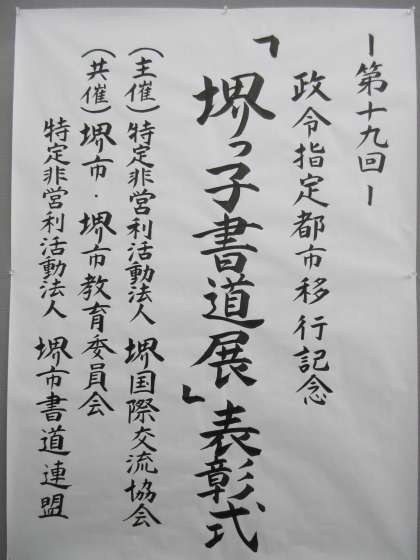 ー第十九回ー
政令指定都市移行記念
「堺っ子書道展」表彰式
(主催)特定非営利活動法人 堺国際交流協会
(共催)堺市・堺市教育委員会
特定非営利活動法人 堺市書道連盟